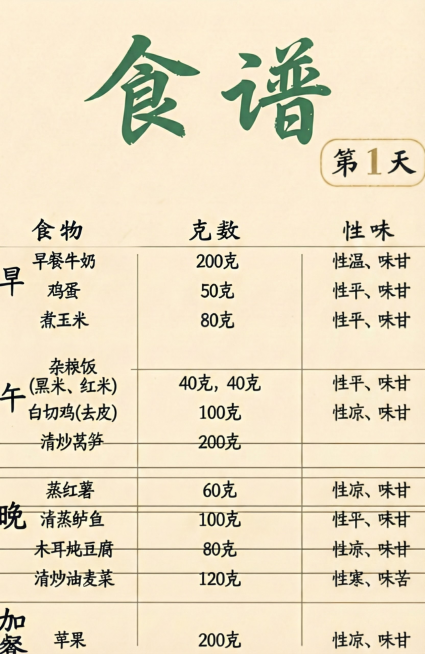 食谱
第1天
食物 克数 性味
早
早餐牛奶 200克 性温、味甘
鸡蛋 50克 性平、味甘
煮玉米 80克 性平、味甘
午
杂粮饭
(黑米、红米) 40克，40克 性平、味甘
白切鸡(去皮) 100克 性凉、味甘
清炒莴笋 200克
晚
蒸红薯 60克 性凉、味甘
清蒸鲈鱼 100克 性平、味甘
木耳炖豆腐 80克 性凉、味甘
清炒油麦菜 120克 性寒、味苦
加餐
苹果 200克 性凉、味甘